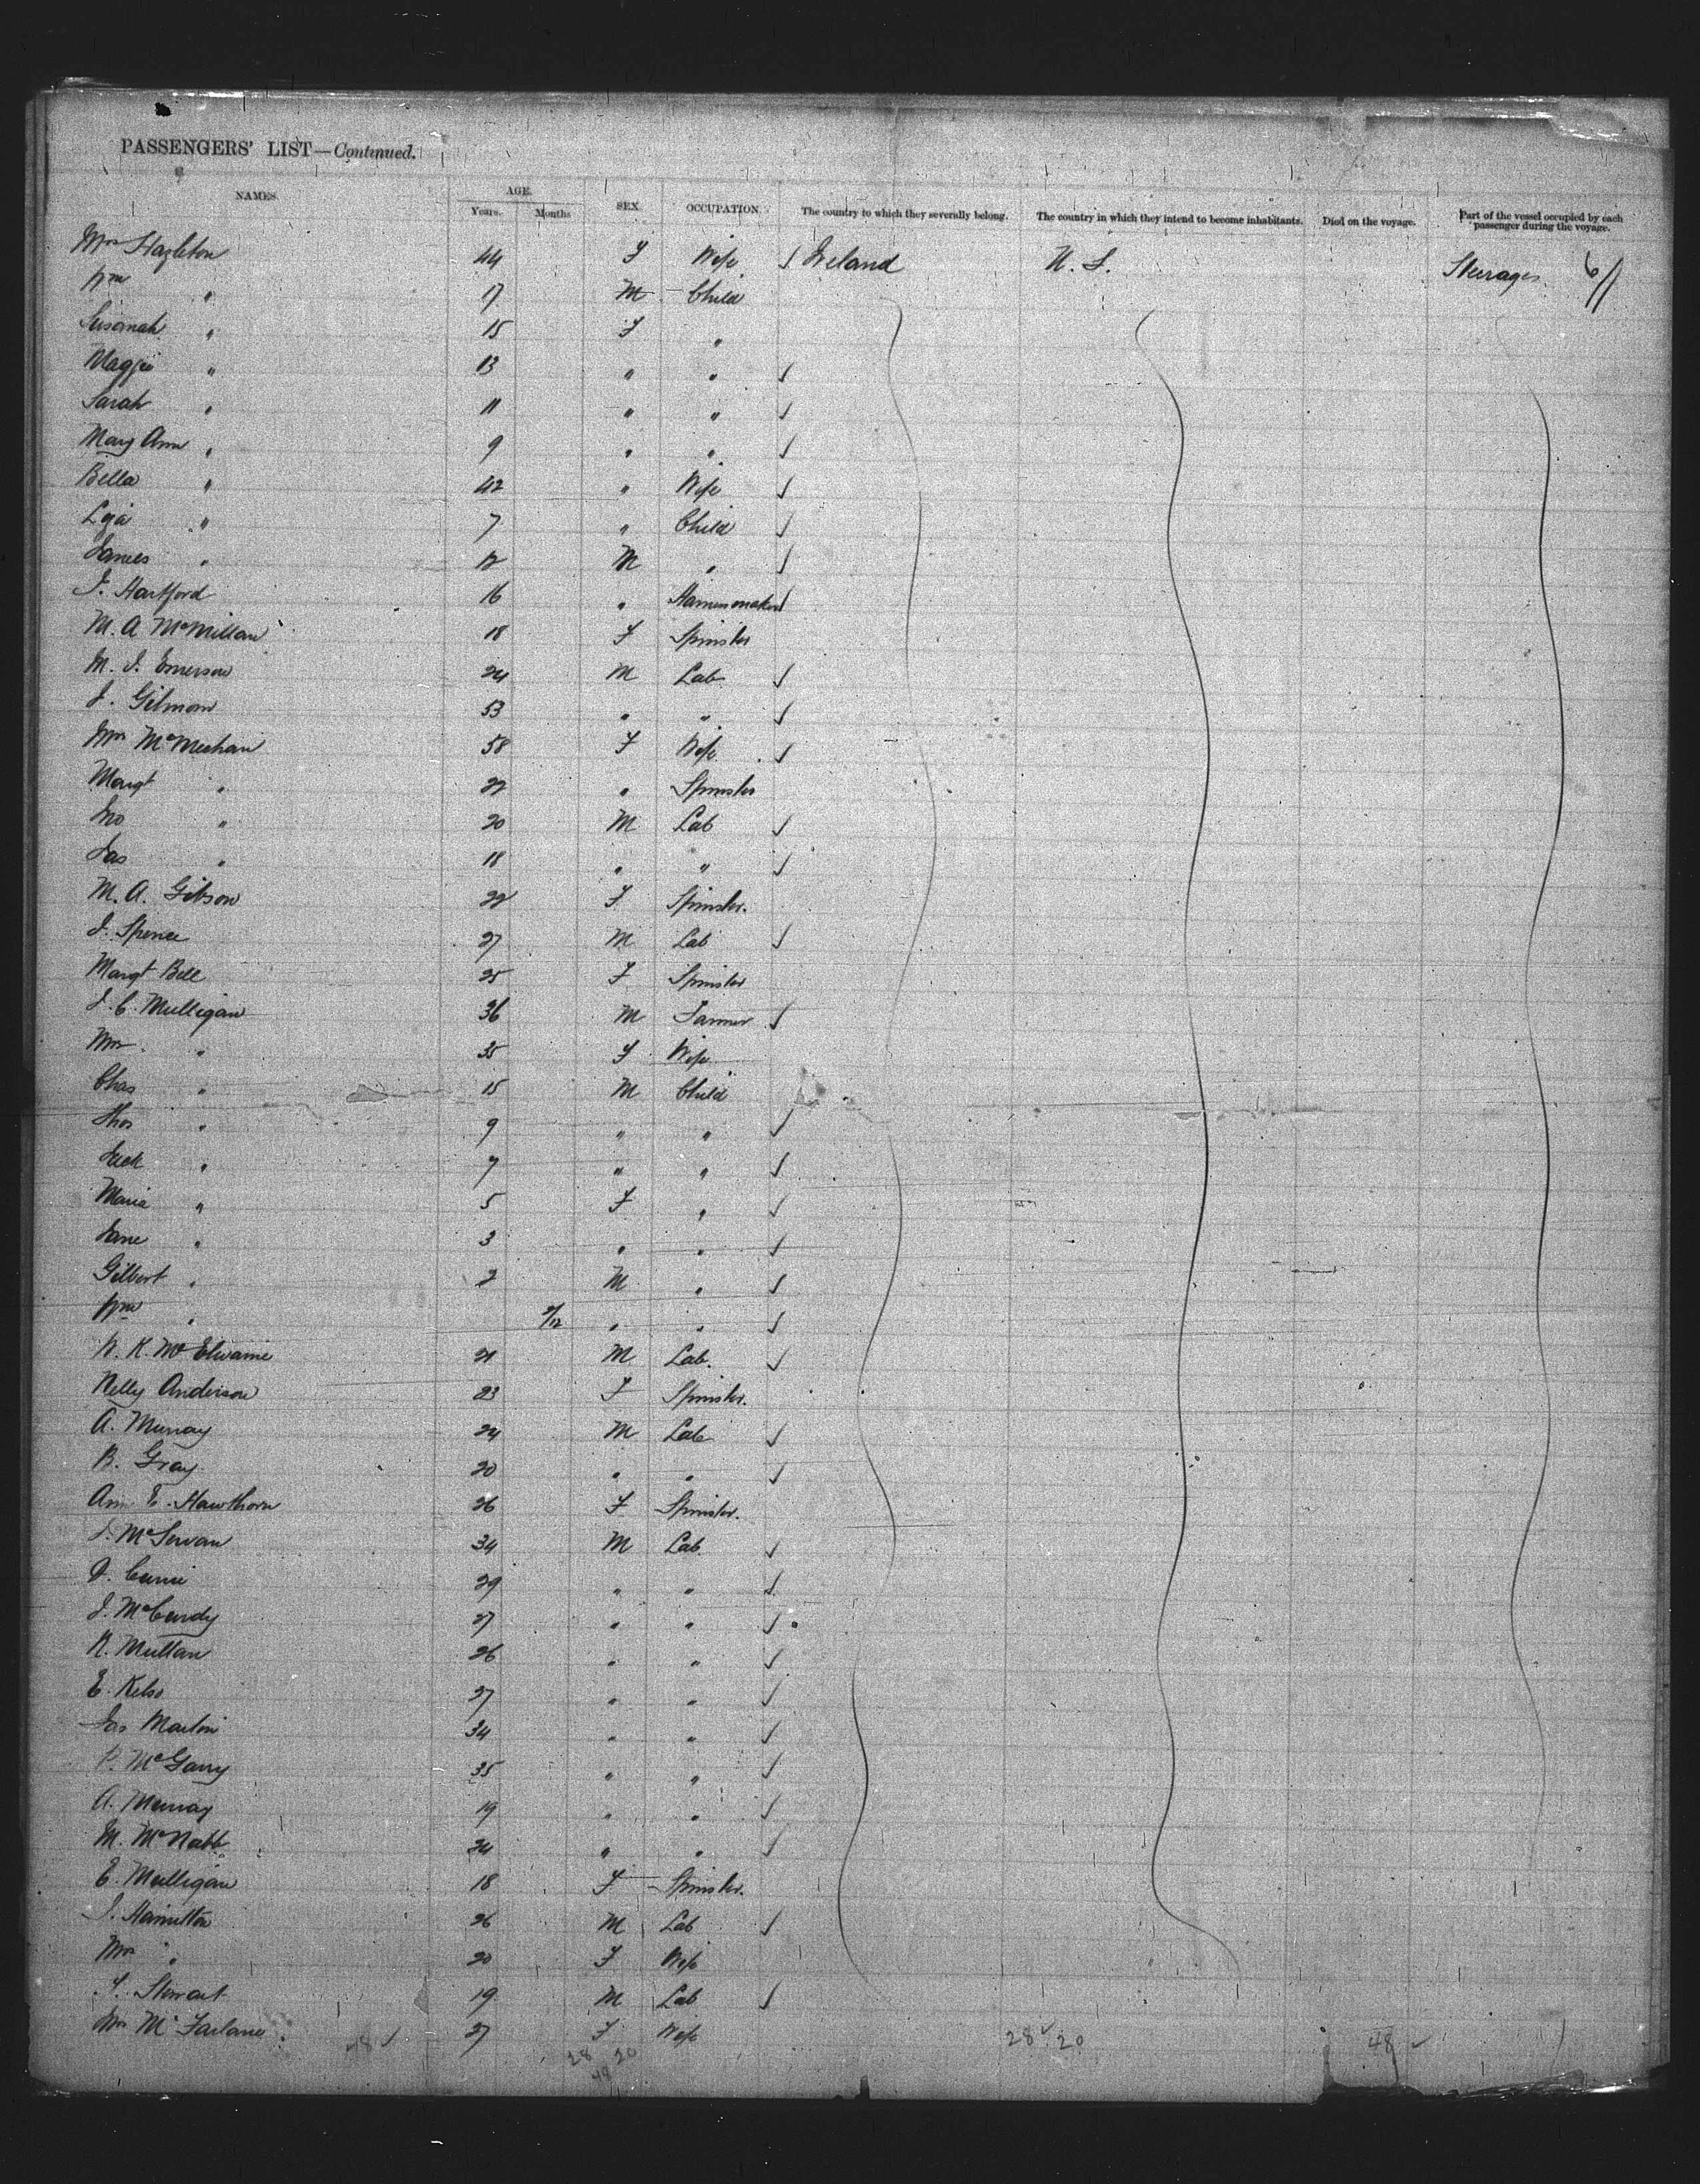 PASSENGERS' LIST—Continued.
NAMES. AGE. Years. Months SEX OCCUPATION. The country to which they severally belong. The country in which they intend to become inhabitants. Died on the voyage. Part of the vessel occupied by each passenger during the voyage.
Mrs Hazleton 44 F Wife Ireland U. S. Steerage
Wm " 17 M Child
Susannah " 15 F "
Maggie " 13 " "
Sarah " 11 " "
Mary Ann " 9 " "
Bella " 42 " Wife
" 7 " Child
James " 12 M "
J. Hartford 16 " Harnessmaker
M. A McMillan 18 F Spinster
M. J. Emerson 24 M Lab
J. Gilmour 53 " "
Mrs McMeehan 58 F Wife
Margt " 22 " Spinster
Jno " 20 M Lab
Jas " 18 " "
M. A. Gibson 22 F Spinster.
J. Spence 27 M Lab
Margt Bell 25 F Spinster
J. C. Mulligan 36 M Farmer
Mrs " 35 F Wife
Chas " 15 M Child
Thos " 9 " "
Jack " 7 " "
Maria " 5 F "
Jane " 3 " "
Gilbert " 2 M "
Wm " 9/12 " "
W. K. McElwaine 21 M Lab.
Nelly Anderson 23 F Spinster.
A. Murray 24 M Lab
B. Gray 20 " "
Ann E. Hawthorn 26 F Spinster.
J. McServan 34 M Lab.
J. Currie 29 " "
J. McCurdy 27 " "
R. Mullan 26 " "
E. Kelso 27 " "
Jas Martin 34 " "
P. McGarry 35 " "
A. Murray 19 " "
M. McNabb 24 " "
E. Mulligan 18 F Spinster.
J. Hamilton 26 M Lab
Mrs " 20 F Wife
Stewart 19 M Lab
Mrs McFarlane 27 F Wife
48 28 20 28 20 48
48